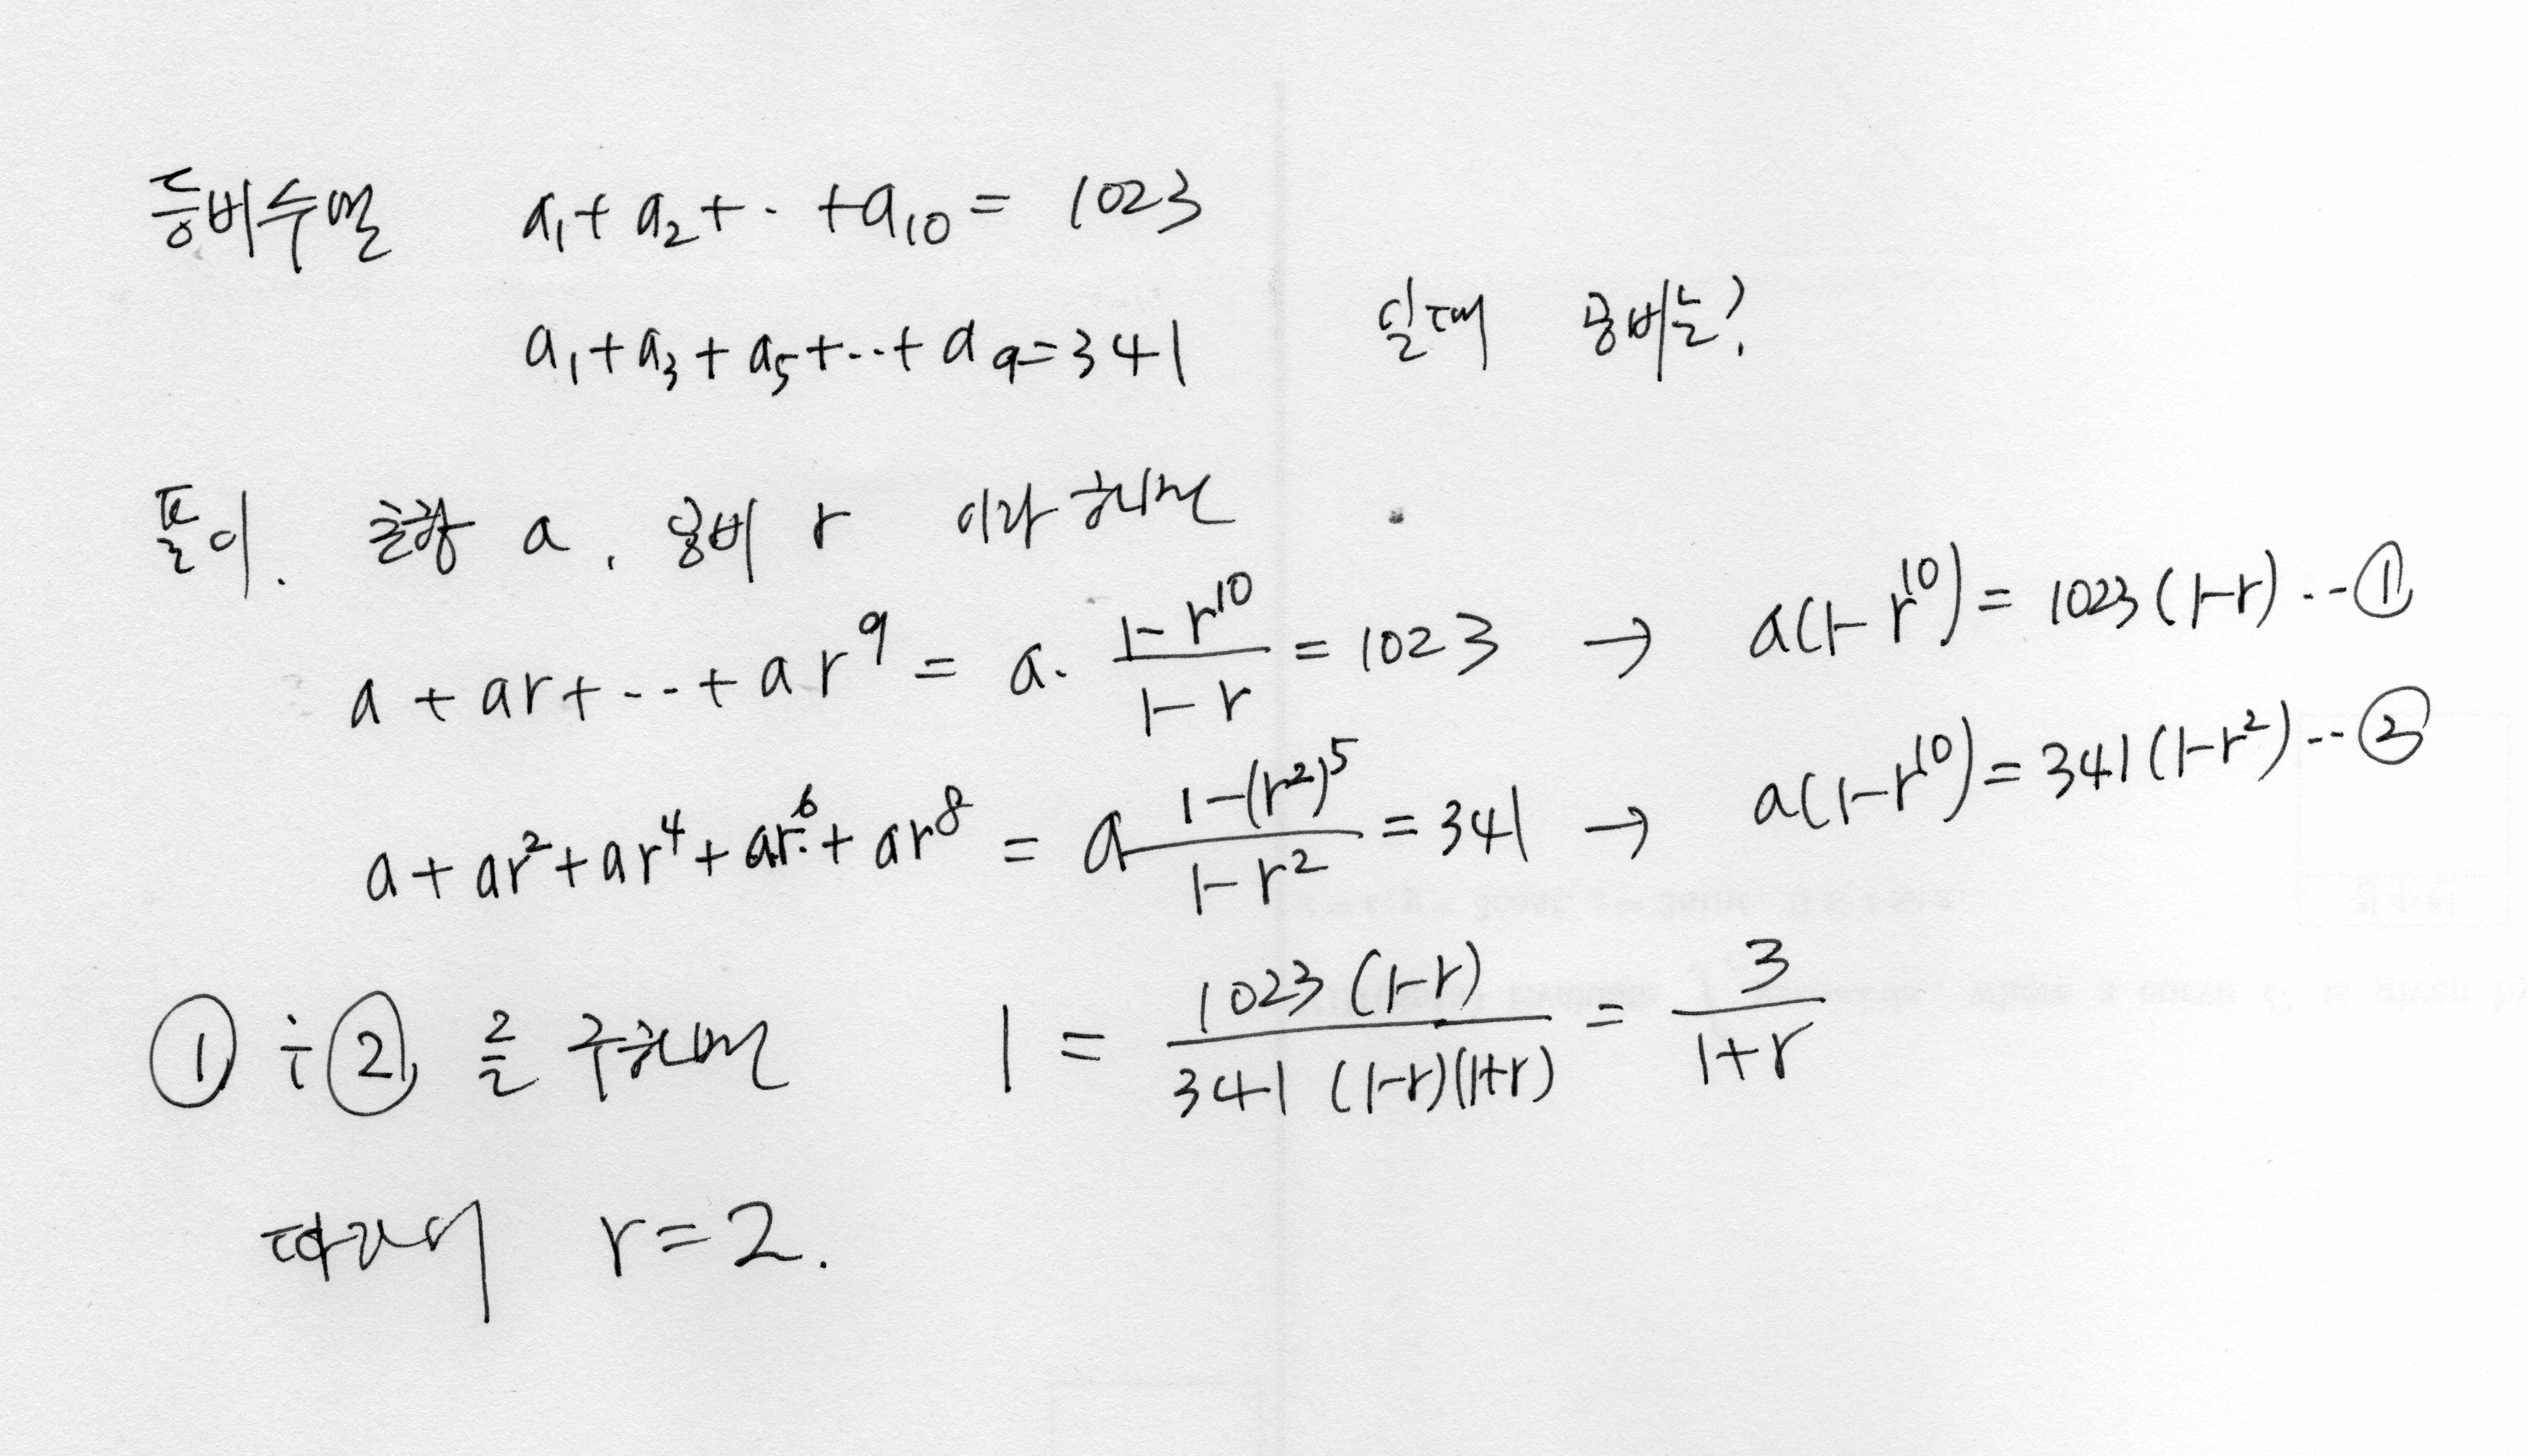 등비수열 a₁ + a₂ + ·· + a₁₀ = 1023
a₁ + a₃ + a₅ + ··· + a₉ = 341 일때 공비는?
풀이. 초항 a, 공비 r 이라 하면
a + ar + ··· + ar⁹ = a · (1-r¹⁰)/(1-r) = 1023 → a(1-r¹⁰) = 1023(1-r) ··· ①
a + ar² + ar⁴ + ar⁶ + ar⁸ = a (1-(r²)⁵)/(1-r²) = 341 → a(1-r¹⁰) = 341(1-r²) ··· ②
① ÷ ② 를 구하면 1 = 1023(1-r)/341(1-r)(1+r) = 3/(1+r)
따라서 r = 2.